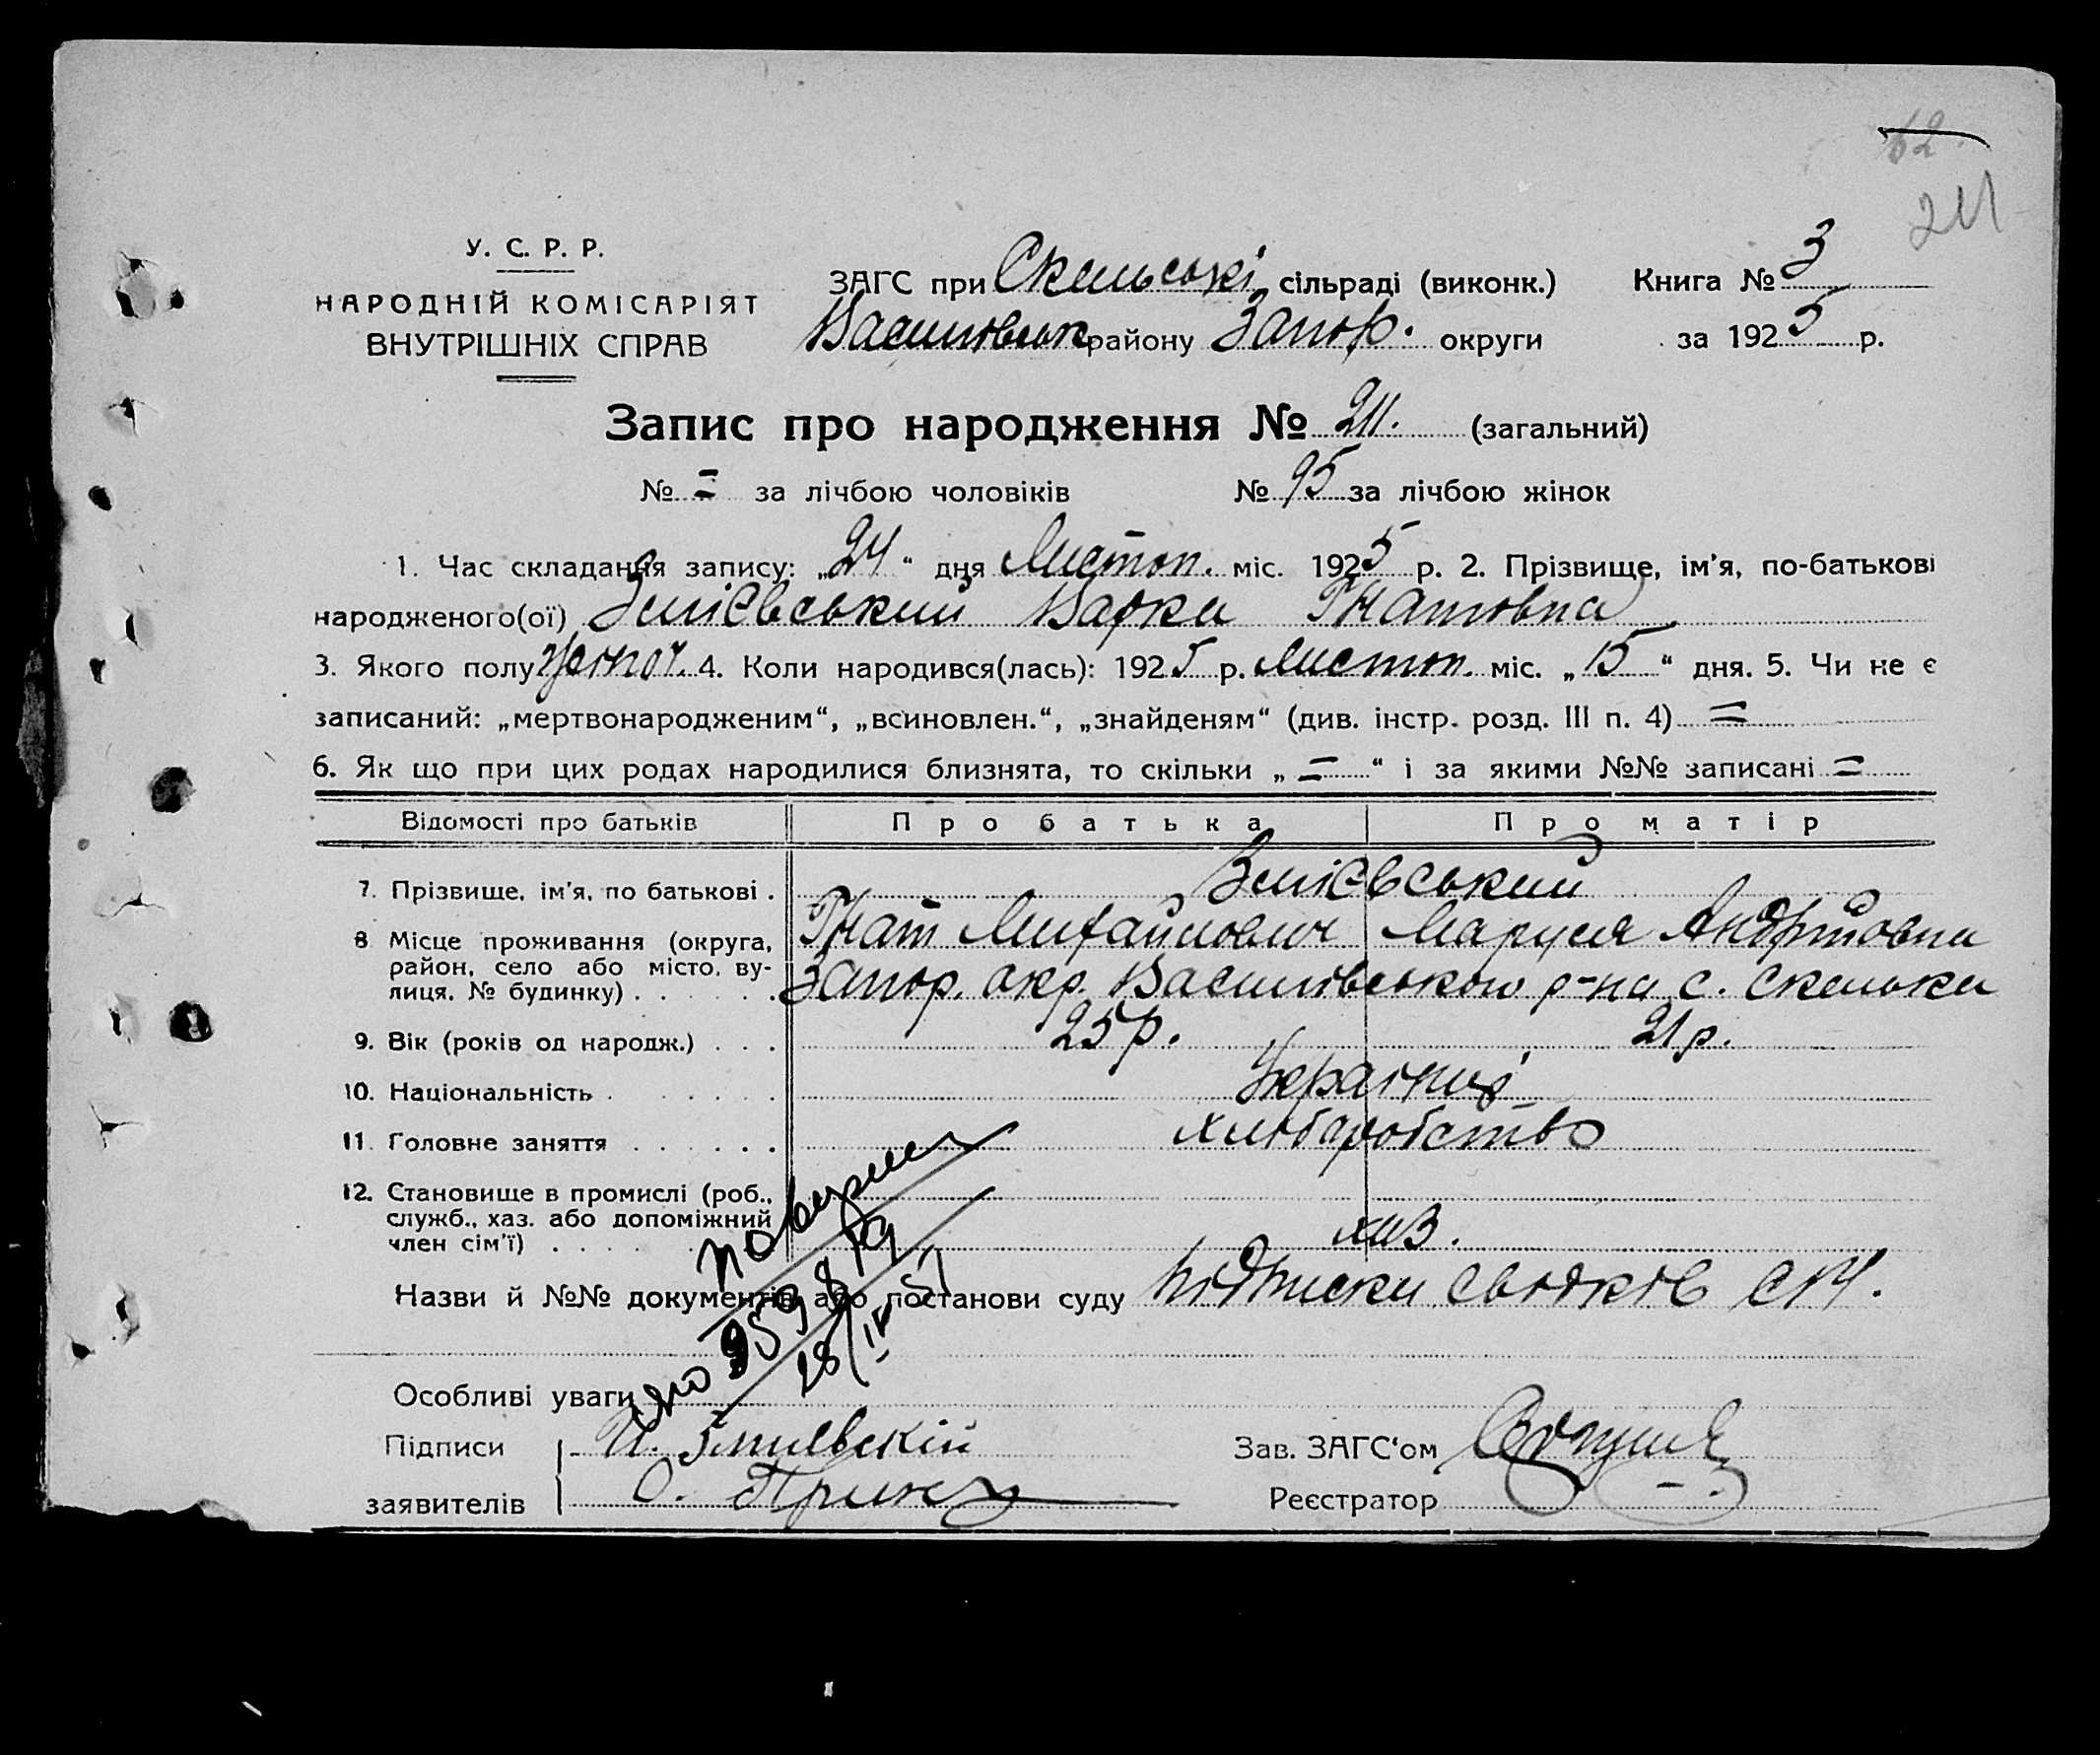 62.
211
У. С. Р. Р.
НАРОДНІЙ КОМІСАРІЯТ
ВНУТРІШНІХ СПРАВ
ЗАГС при Скельські сільраді (виконк.) Книга № 3
Василівськ району Запор. округи за 1925 р.
Запис про народження № 211. (загальний)
№ = за лічбою чоловіків № 95 за лічбою жінок
1. Час складання запису: „24“ дня Листоп. міс. 1925 р. 2. Прізвище, ім'я, по-батькові
народженого(ої) Змієвський Варка Гнатовна
3. Якого полу жіноч. 4. Коли народився(лась): 1925 р. листоп. міс. „15“ дня. 5. Чи не є
записаний: „мертвонародженим“, „всиновлен.“, „знайденям“ (див. інстр. розд. III п. 4) =
6. Як що при цих родах народилися близнята, то скільки „=“ і за якими №№ записані =
Відомості про батьків Про батька Про матір
7. Прізвище, ім'я, по батькові . Змієвський
Гнат Михайлович Маруся Андріовна
8 Місце проживання (округа,
район, село або місто, ву-
лиця, № будинку) . . . . . . Запор. окр. Василівського р-на с. Скельки
9. Вік (років од народж.) . . . 25 р. 21 р.
10. Національність . . . . . . Українці
11. Головне заняття . . . . . . хліборобство
12. Становище в промислі (роб.,
служб., хаз. або допоміжний
член сім'ї) . . . . хаз.
Назви й №№ документів або постанови суду підписки свідків с/м.
959819
28/IV 51
Особливі уваги
Підписи И. Змиевскій Зав. ЗАГС'ом
заявителів О. Реєстратор